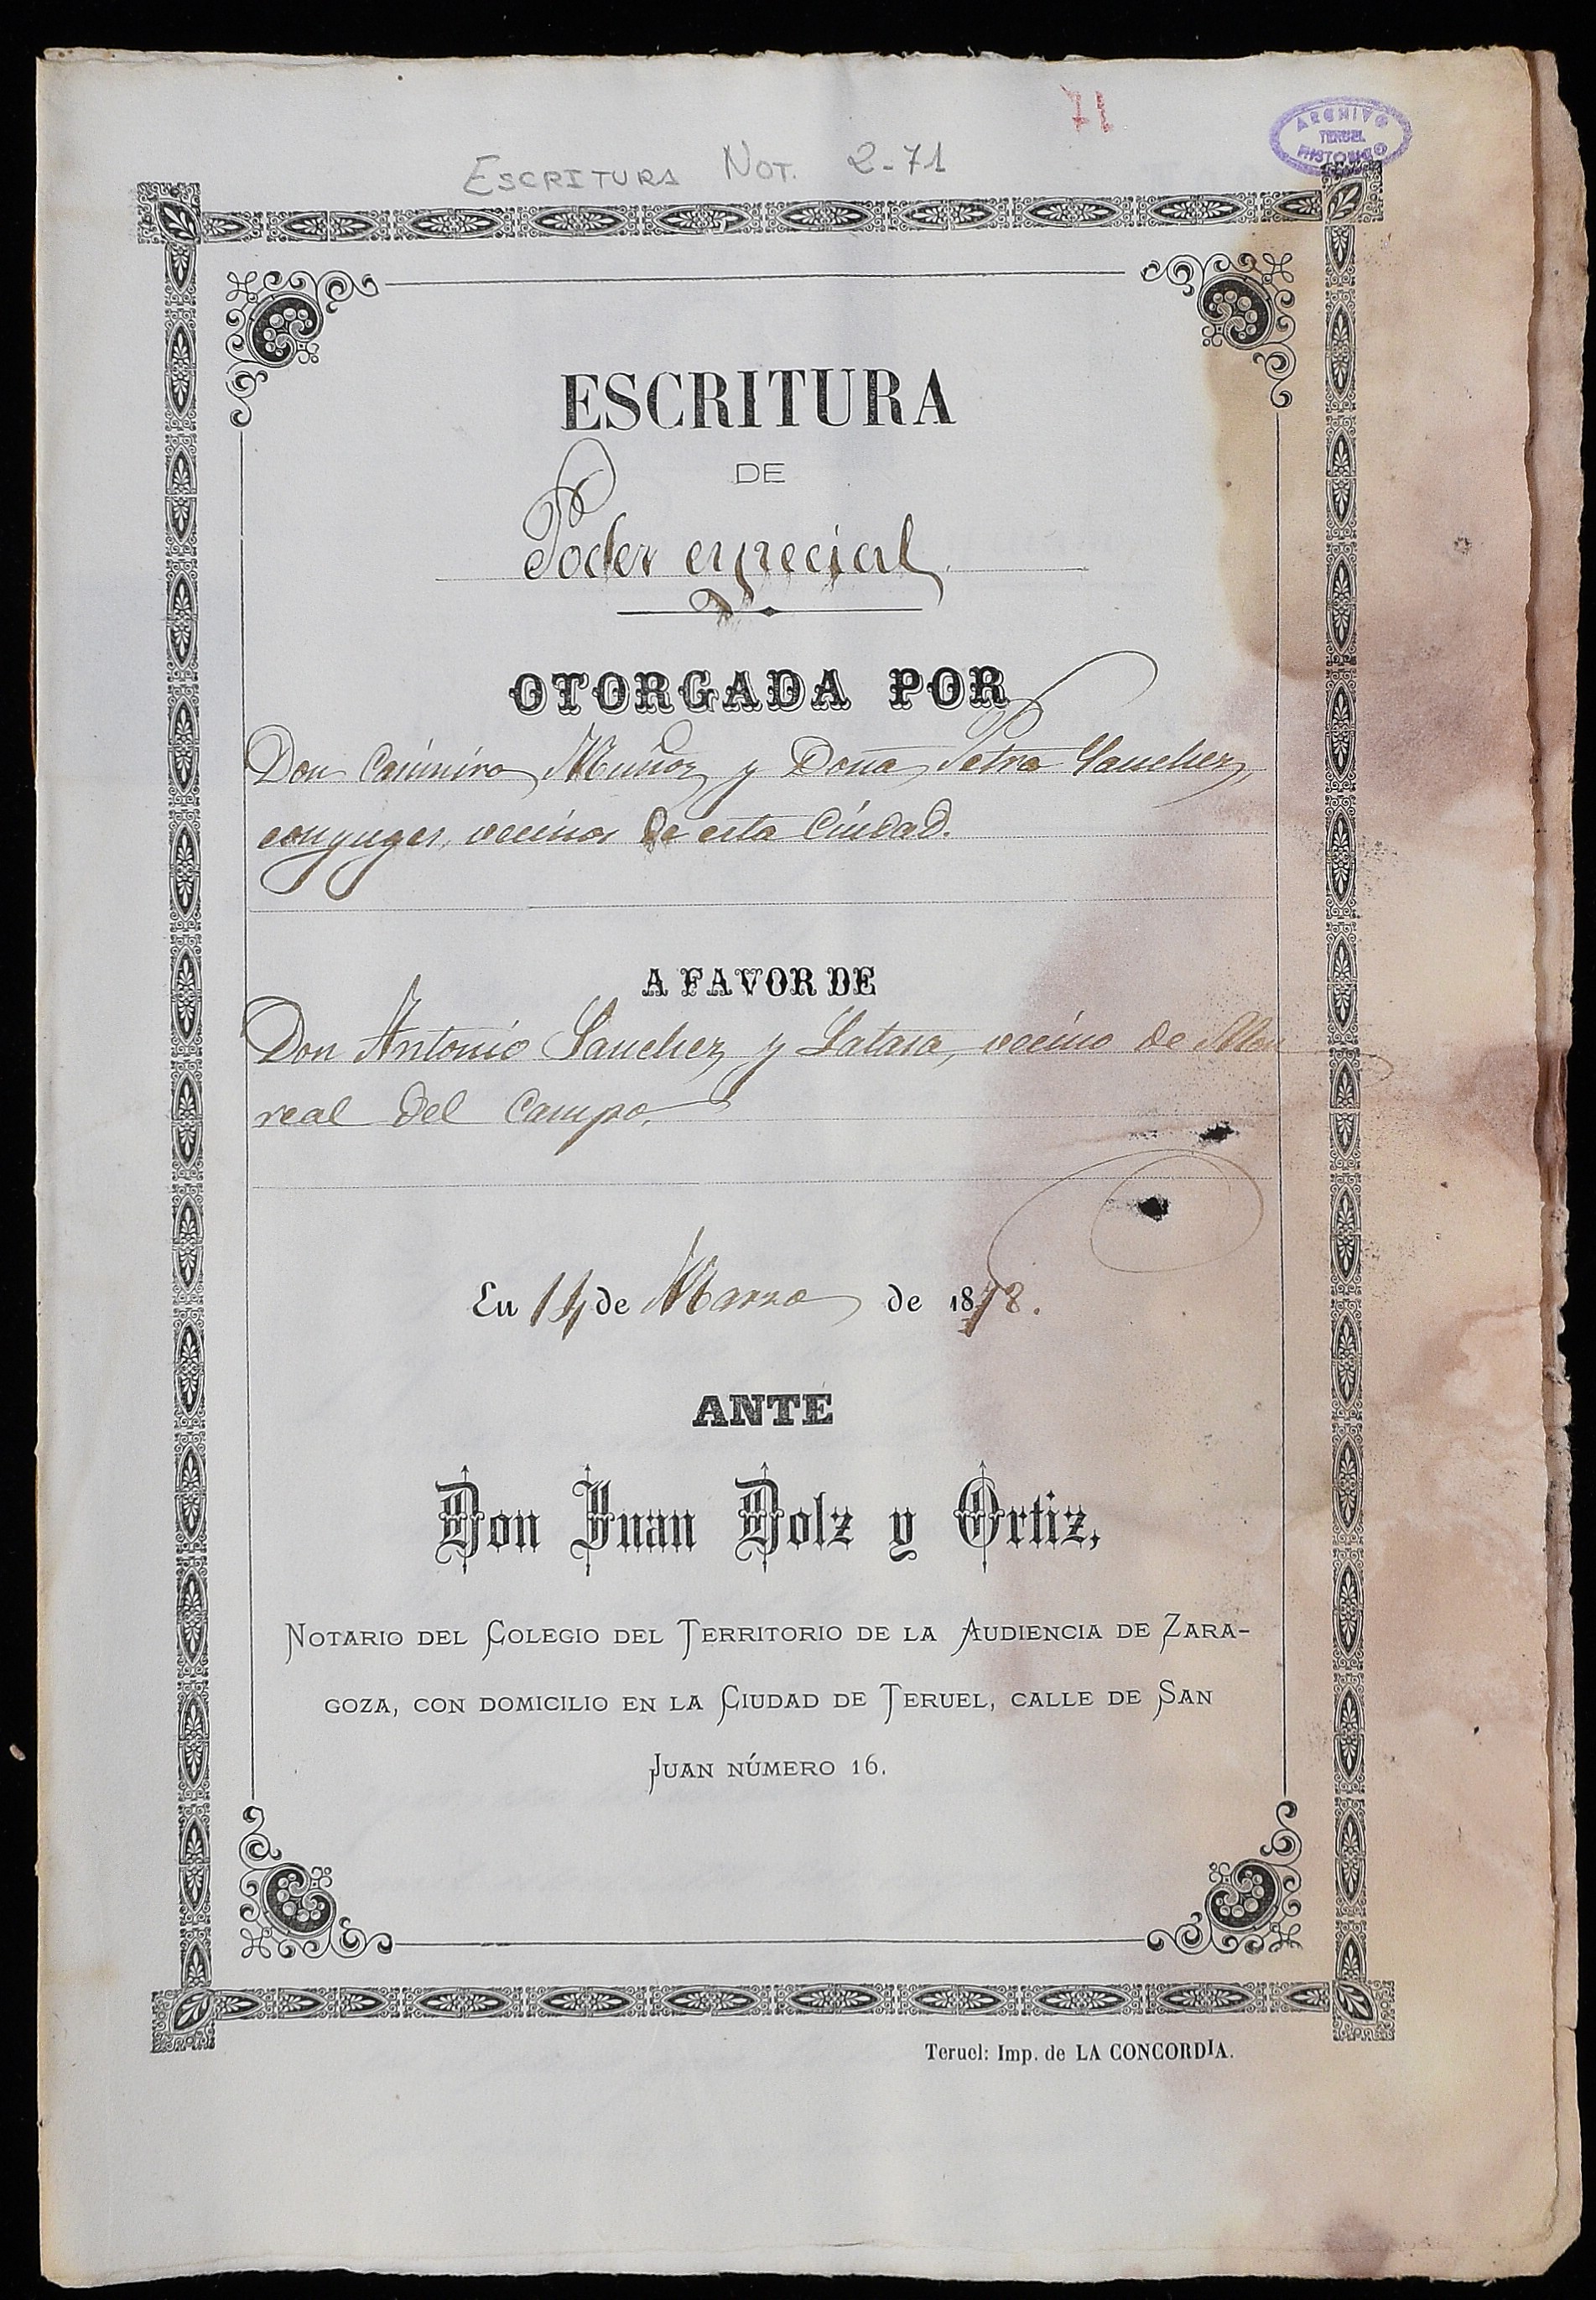 71
ARCHIVO
TERUEL
HISTORICO
ESCRITURA NOT. 2-71
ESCRITURA
DE
Poder especial
OTORGADA POR
Don Casimiro Muñoz y Doña Petra Sanchez,
conyuges, vecinos de esta Ciudad.
A FAVOR DE
Don Antonio Sanchez y Latasa, vecino de Mon
real del Campo.
En 14 de Marzo de 1878.
ANTE
Don Juan Dolz y Ortiz,
NOTARIO DEL COLEGIO DEL TERRITORIO DE LA AUDIENCIA DE ZARA-
GOZA, CON DOMICILIO EN LA CIUDAD DE TERUEL, CALLE DE SAN
JUAN NÚMERO 16.
Teruel: Imp. de LA CONCORDIA.